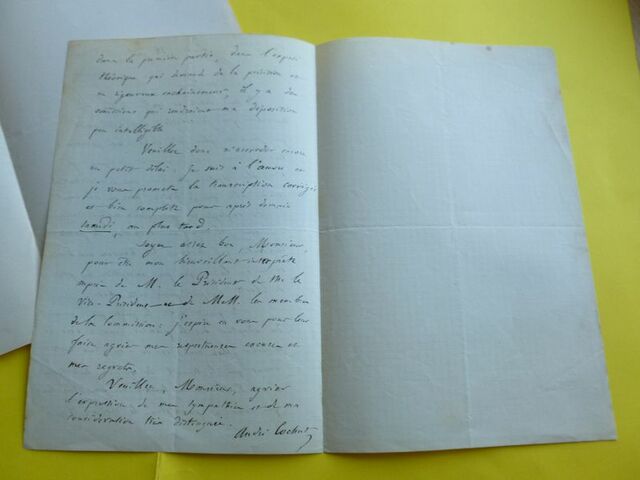 dans la première partie, dans l'exposé
théorique qui demande de la précision et
un rigoureux enchaînement, il y a des
omissions qui rendraient ma déposition
peu intelligible
Veuillez donc m'accorder encore
un petit délai. Je suis à l'œuvre et
je vous promets la transcription corrigée
et bien complète pour après demain
samedi, au plus tard.
Soyez assez bon, Monsieur,
pour être mon bienveillant interprète
auprès de M. le Président de M. le
Vice-Président et de M.M. les membres
de la Commission : j'espère en vous pour leur
faire agréer mes respectueuses excuses et
mes regrets.
Veuillez, Monsieur, agréer
l'expression de mes sympathies et de ma
considération très distinguée.
André Cochut